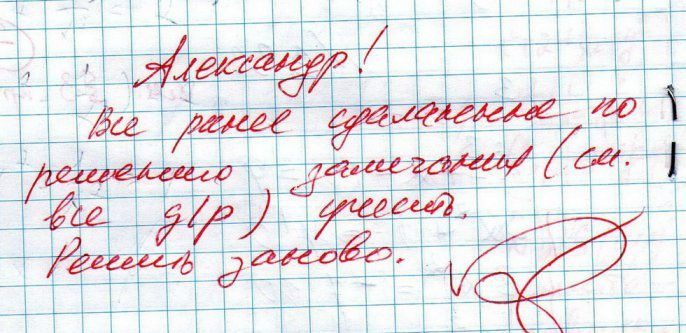 Александр!
Все ранее сделанные по
решению замечания (см.
все д/р) учесть.
Решить заново.